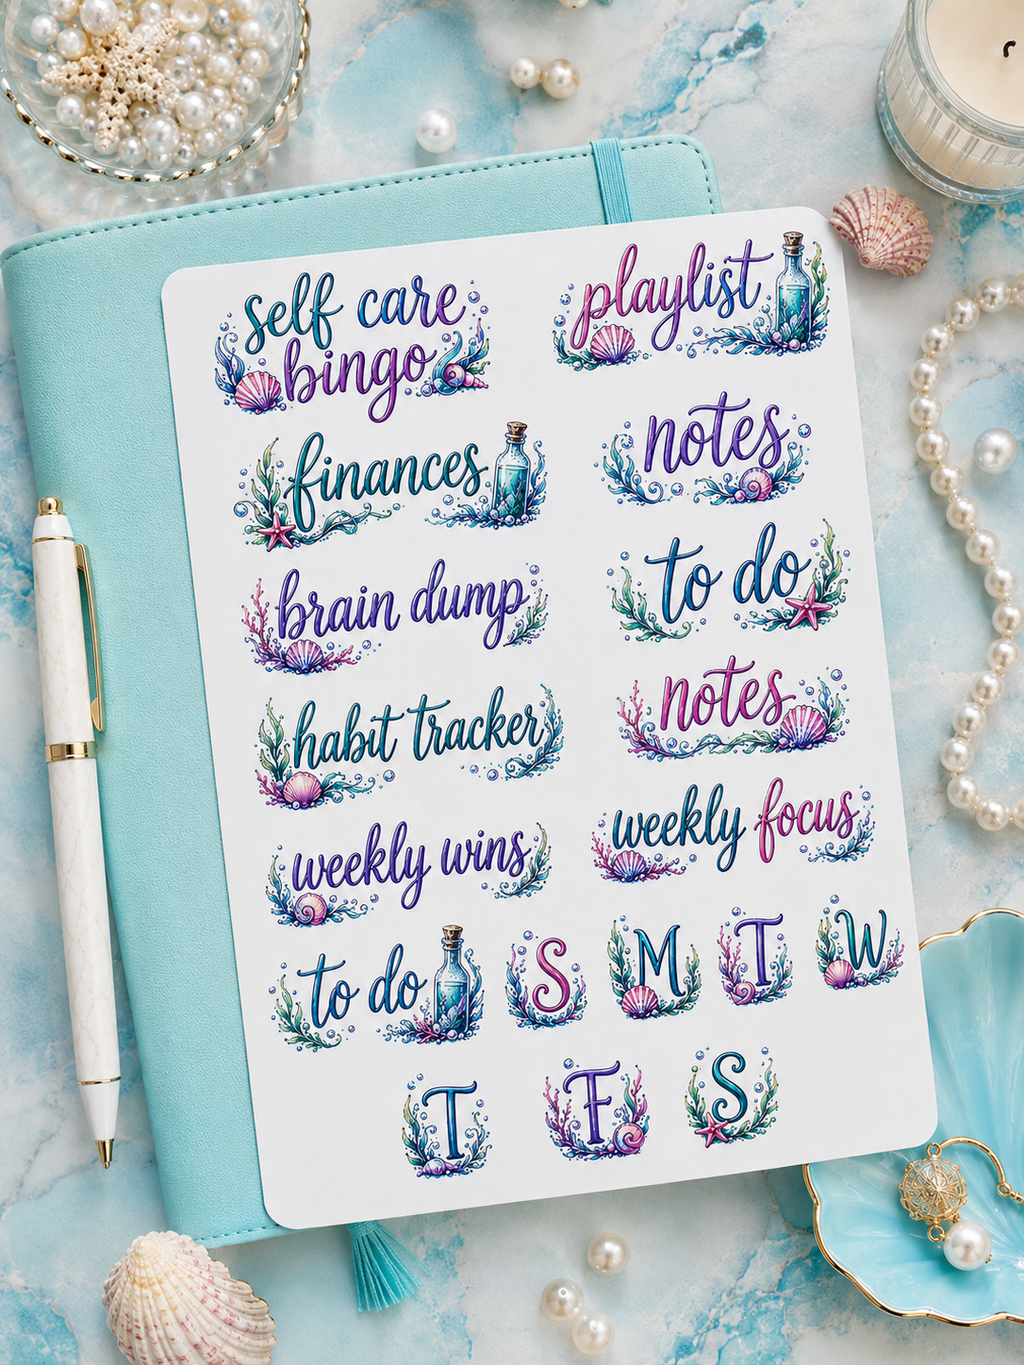 self care
bingo
playlist
finances
notes
brain dump
to do
habit tracker
notes
weekly wins
weekly focus
to do
S
M
T
W
T
F
S